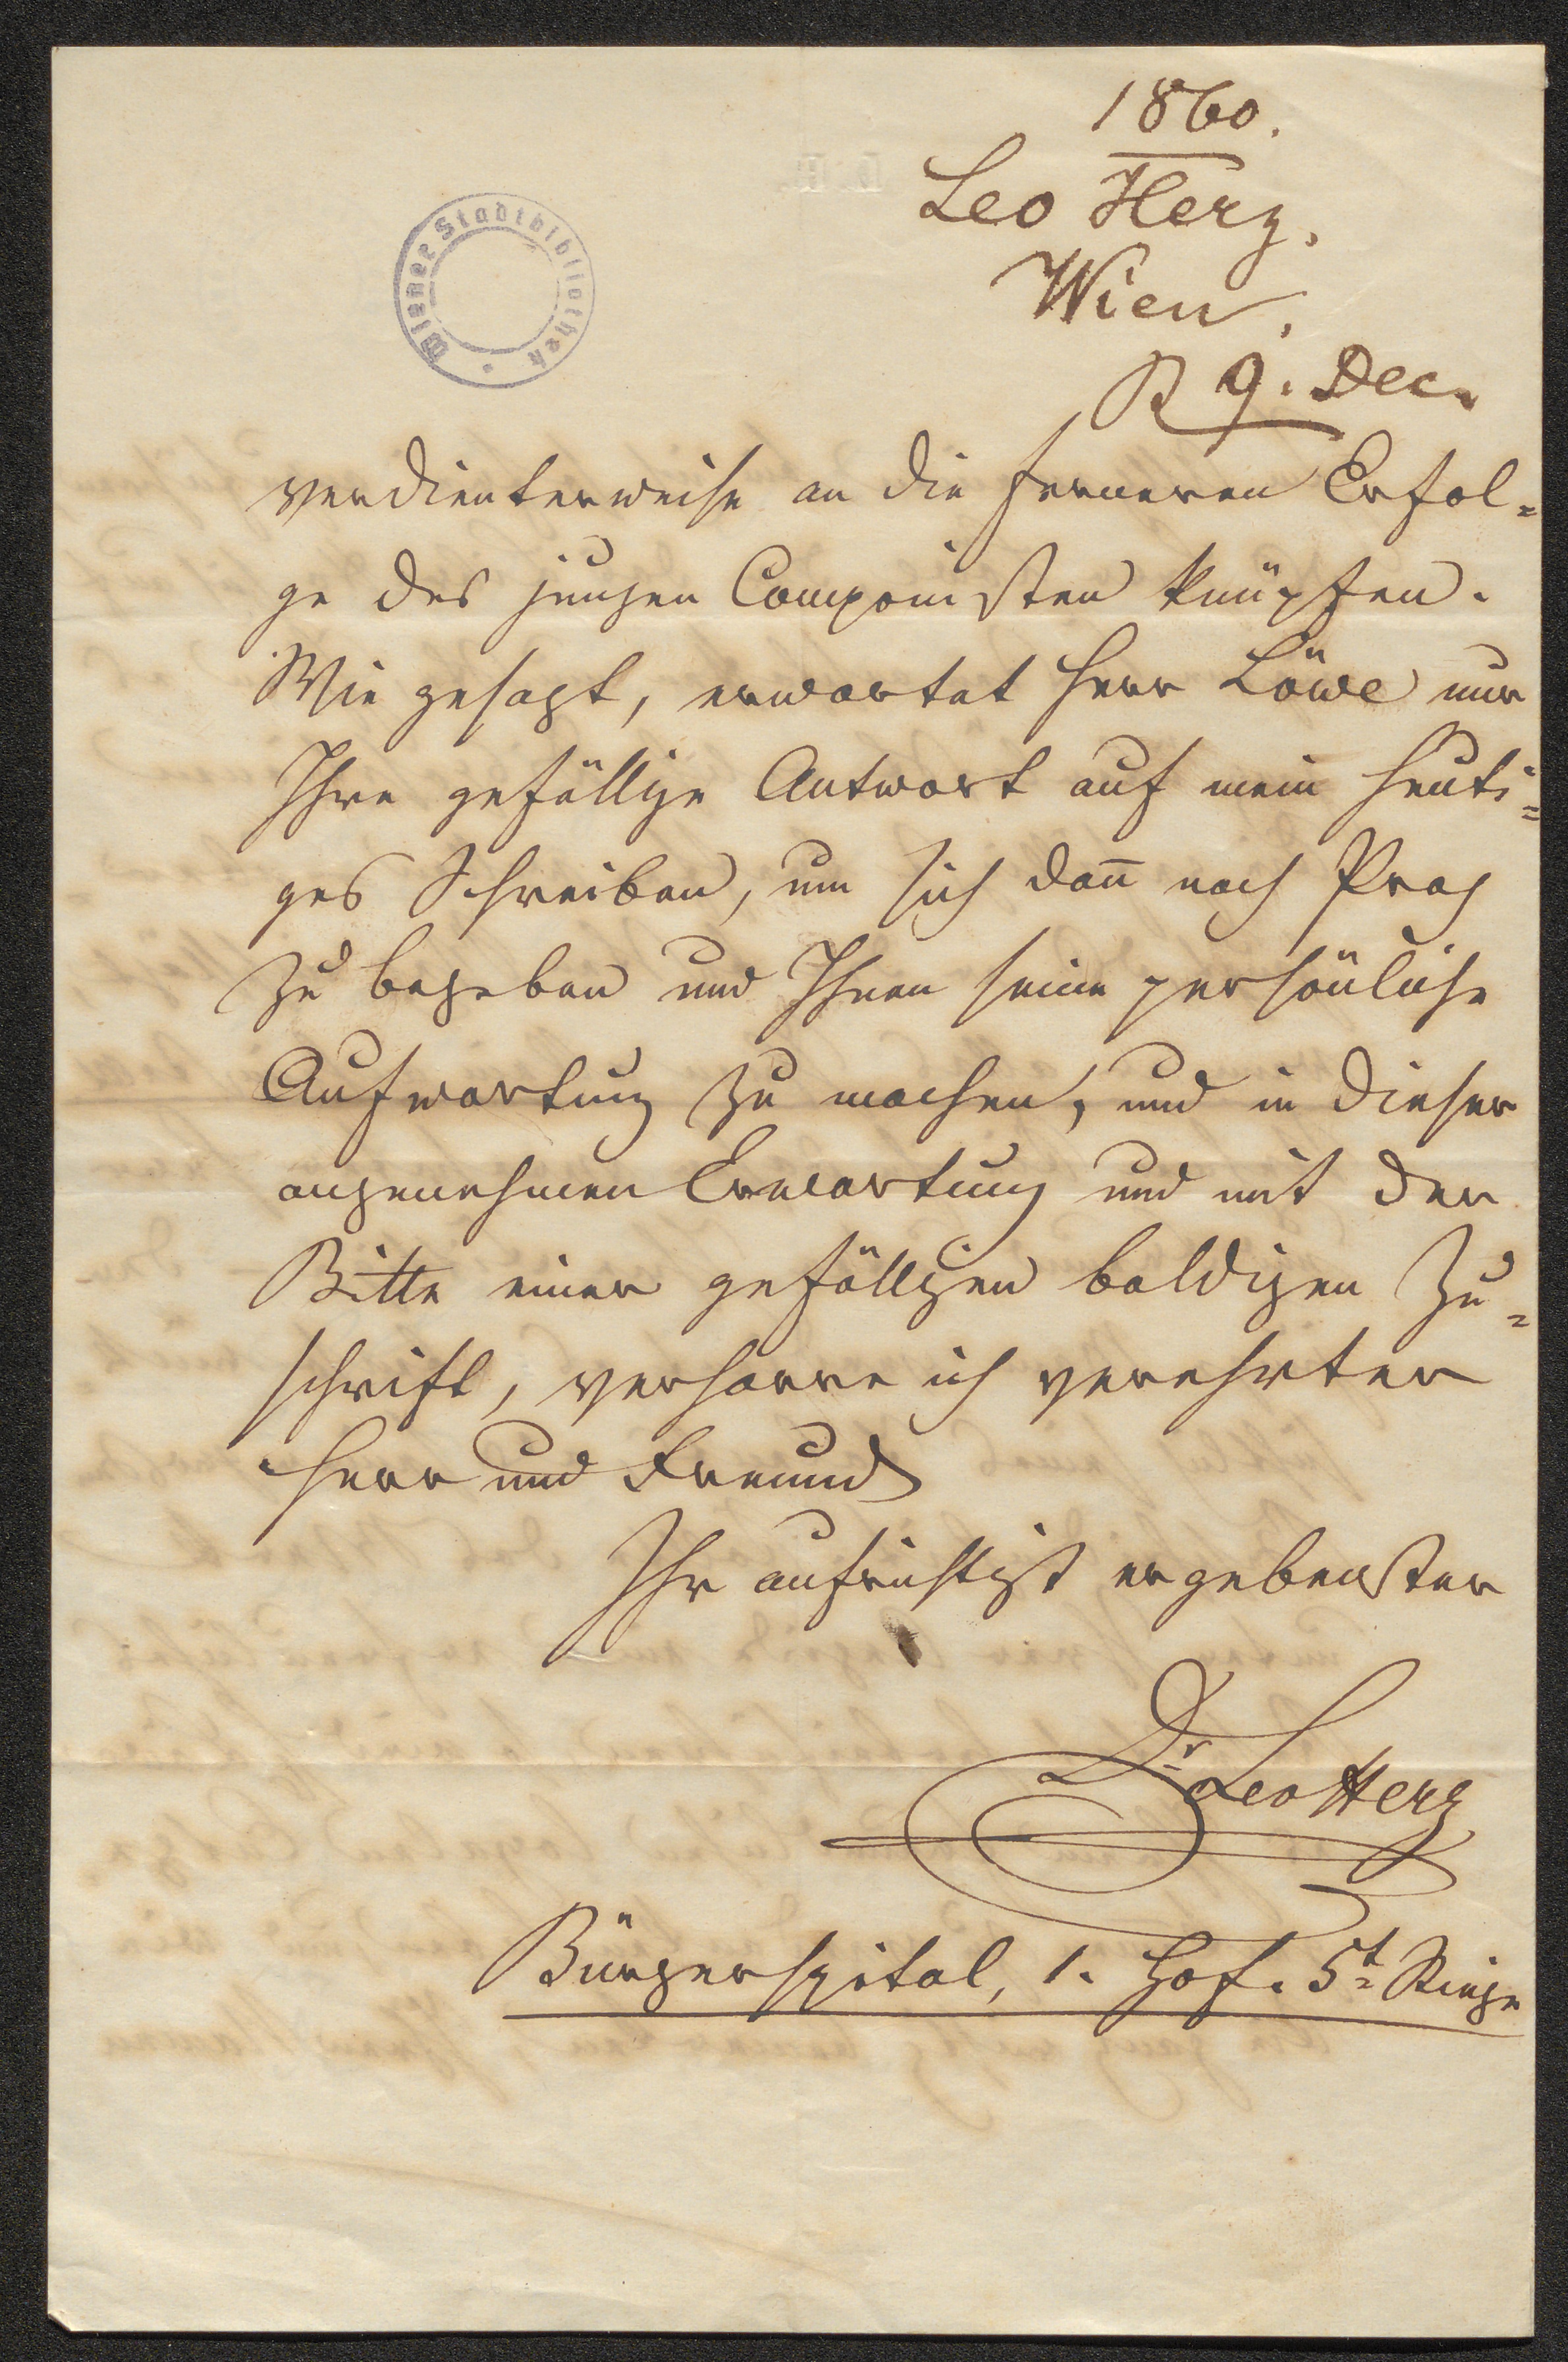 1860.
Leo Herz.
Wien.
R 9. Dec.
Wiener Stadtbibliothek
verdienterweise an die ferneren Erfol=
ge des jungen Componisten knüpfen.
Wie gesagt, erwartet Herr Löwe nur
Ihre gefällige Antwort auf mein heuti=
ges Schreiben, um sich dañ nach Prag
zu begeben und Ihnen seine persönliche
Aufwartung zu machen, und in dieser
angenehmen Erwartung und mit der
Bitte einer gefälligen baldigen Zu=
schrift, verharre ich verehrter
Herr und Freund
Ihr aufrichtigst ergebenster
Dr Leo Herz
Bürgerspital, 1. Hof. 5t Stiege